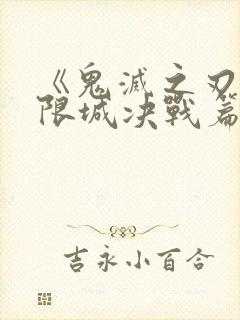 《鬼滅之刃
限城决戰篇
吉永小百合